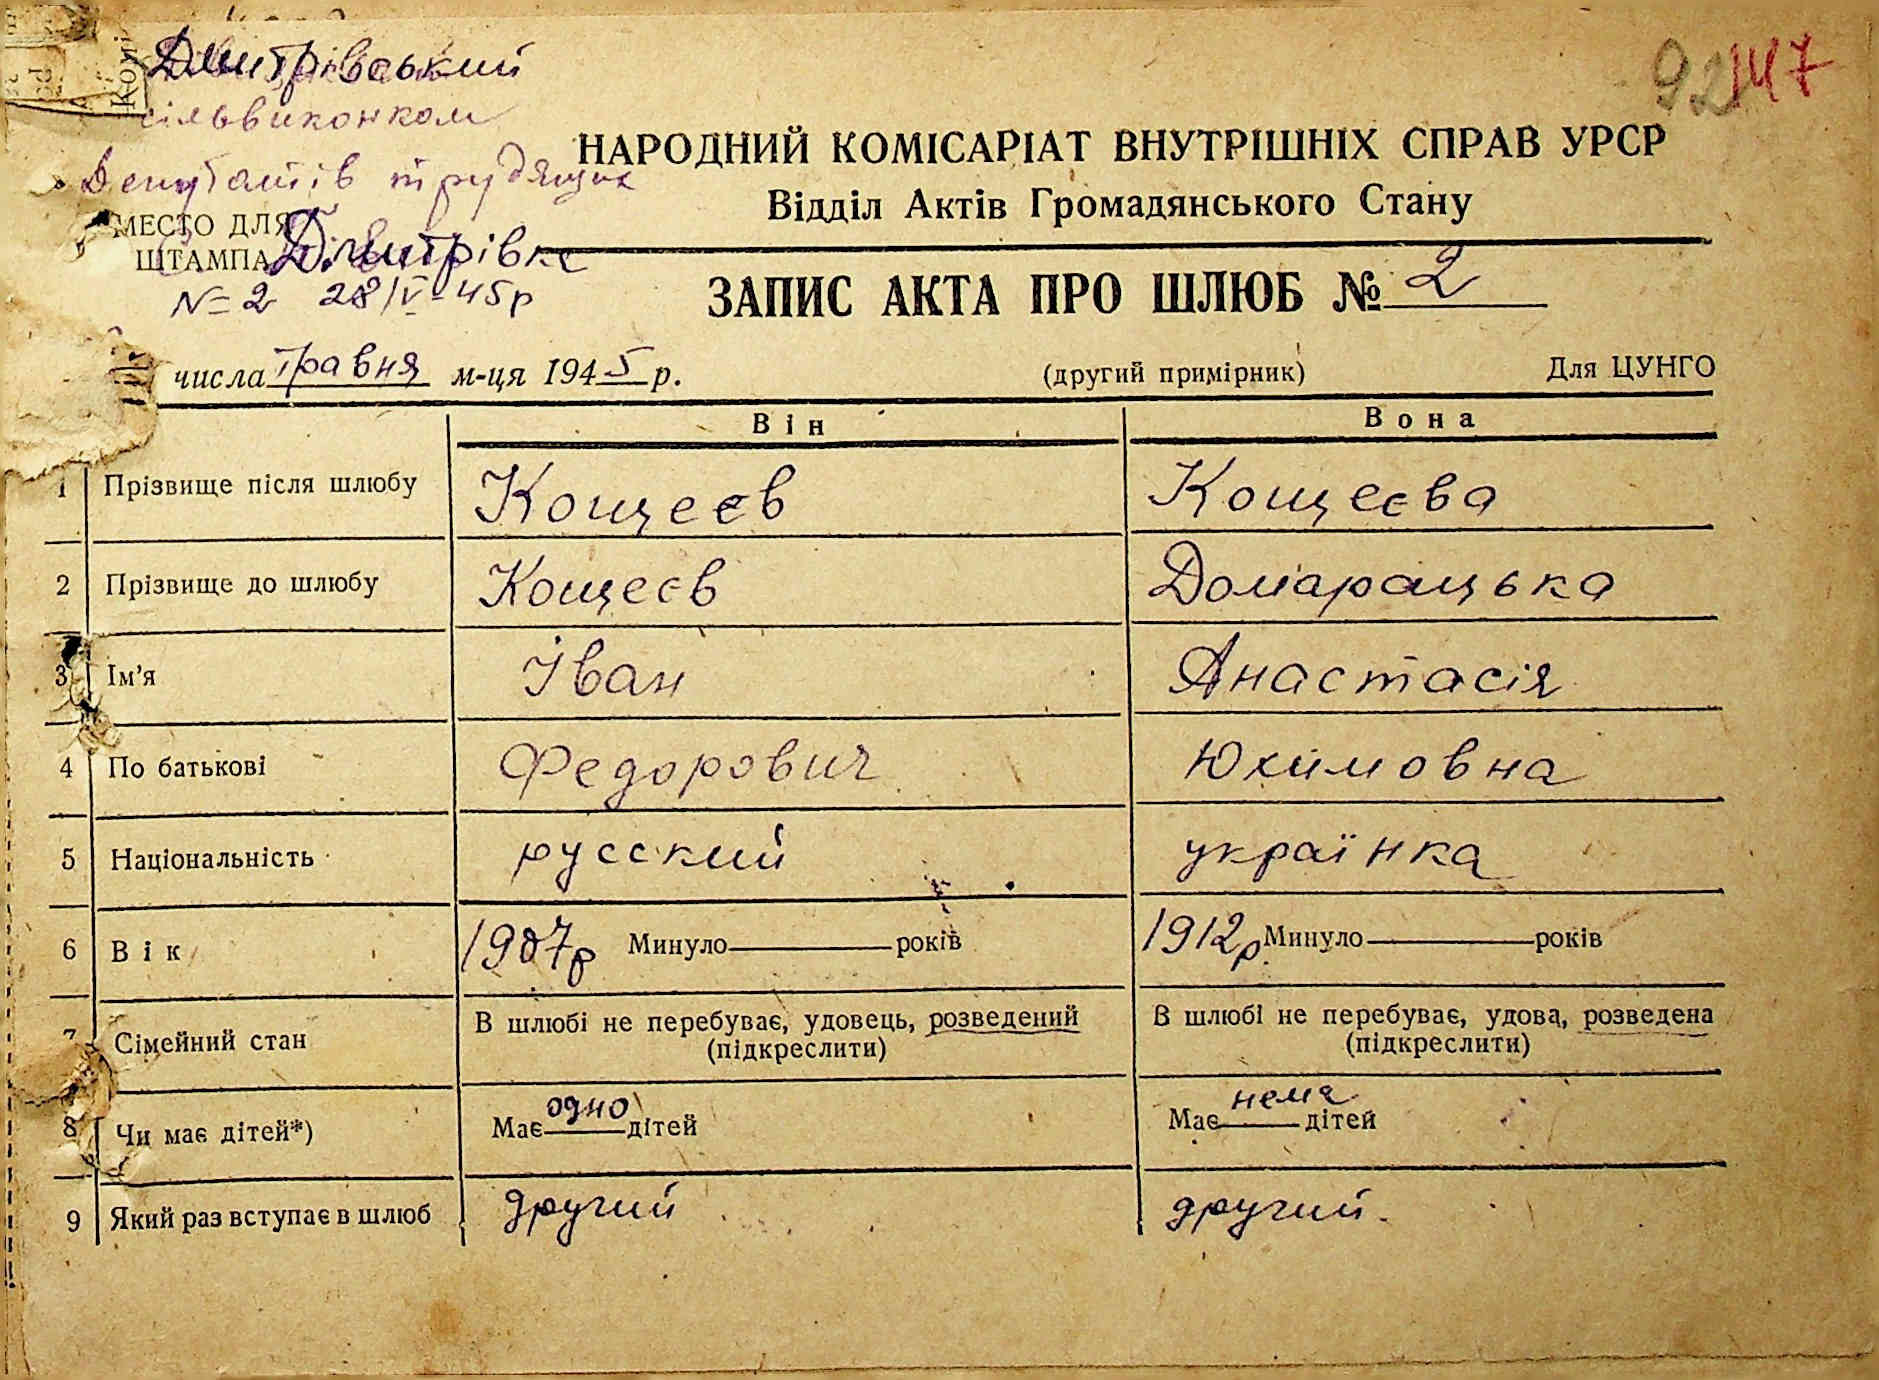 92 147
Дмитрівський
сільвиконком
Депутатів трудящих
НАРОДНИЙ КОМІСАРІАТ ВНУТРІШНІХ СПРАВ УРСР
Відділ Актів Громадянського Стану
МЕСТО ДЛЯ
ШТАМПА
Дмитрівка
№ 2 28/V-45р
ЗАПИС АКТА ПРО ШЛЮБ № 2
числа травня м-ця 1945 р. (другий примірник) Для ЦУНГО
Він Вона
1 Прізвище після шлюбу Кощеєв Кощеєва
2 Прізвище до шлюбу Кощеєв Домарацька
3 Ім'я Іван Анастасія
4 По батькові Федорович Юхимовна
5 Національність русский українка
6 Вік 1907р Минуло років 1912р Минуло років
7 Сімейний стан В шлюбі не перебуває, удовець, розведений В шлюбі не перебуває, удова, розведена
(підкреслити) (підкреслити)
8 Чи має дітей*) Має одно дітей Має нема дітей
9 Який раз вступає в шлюб другий другий.